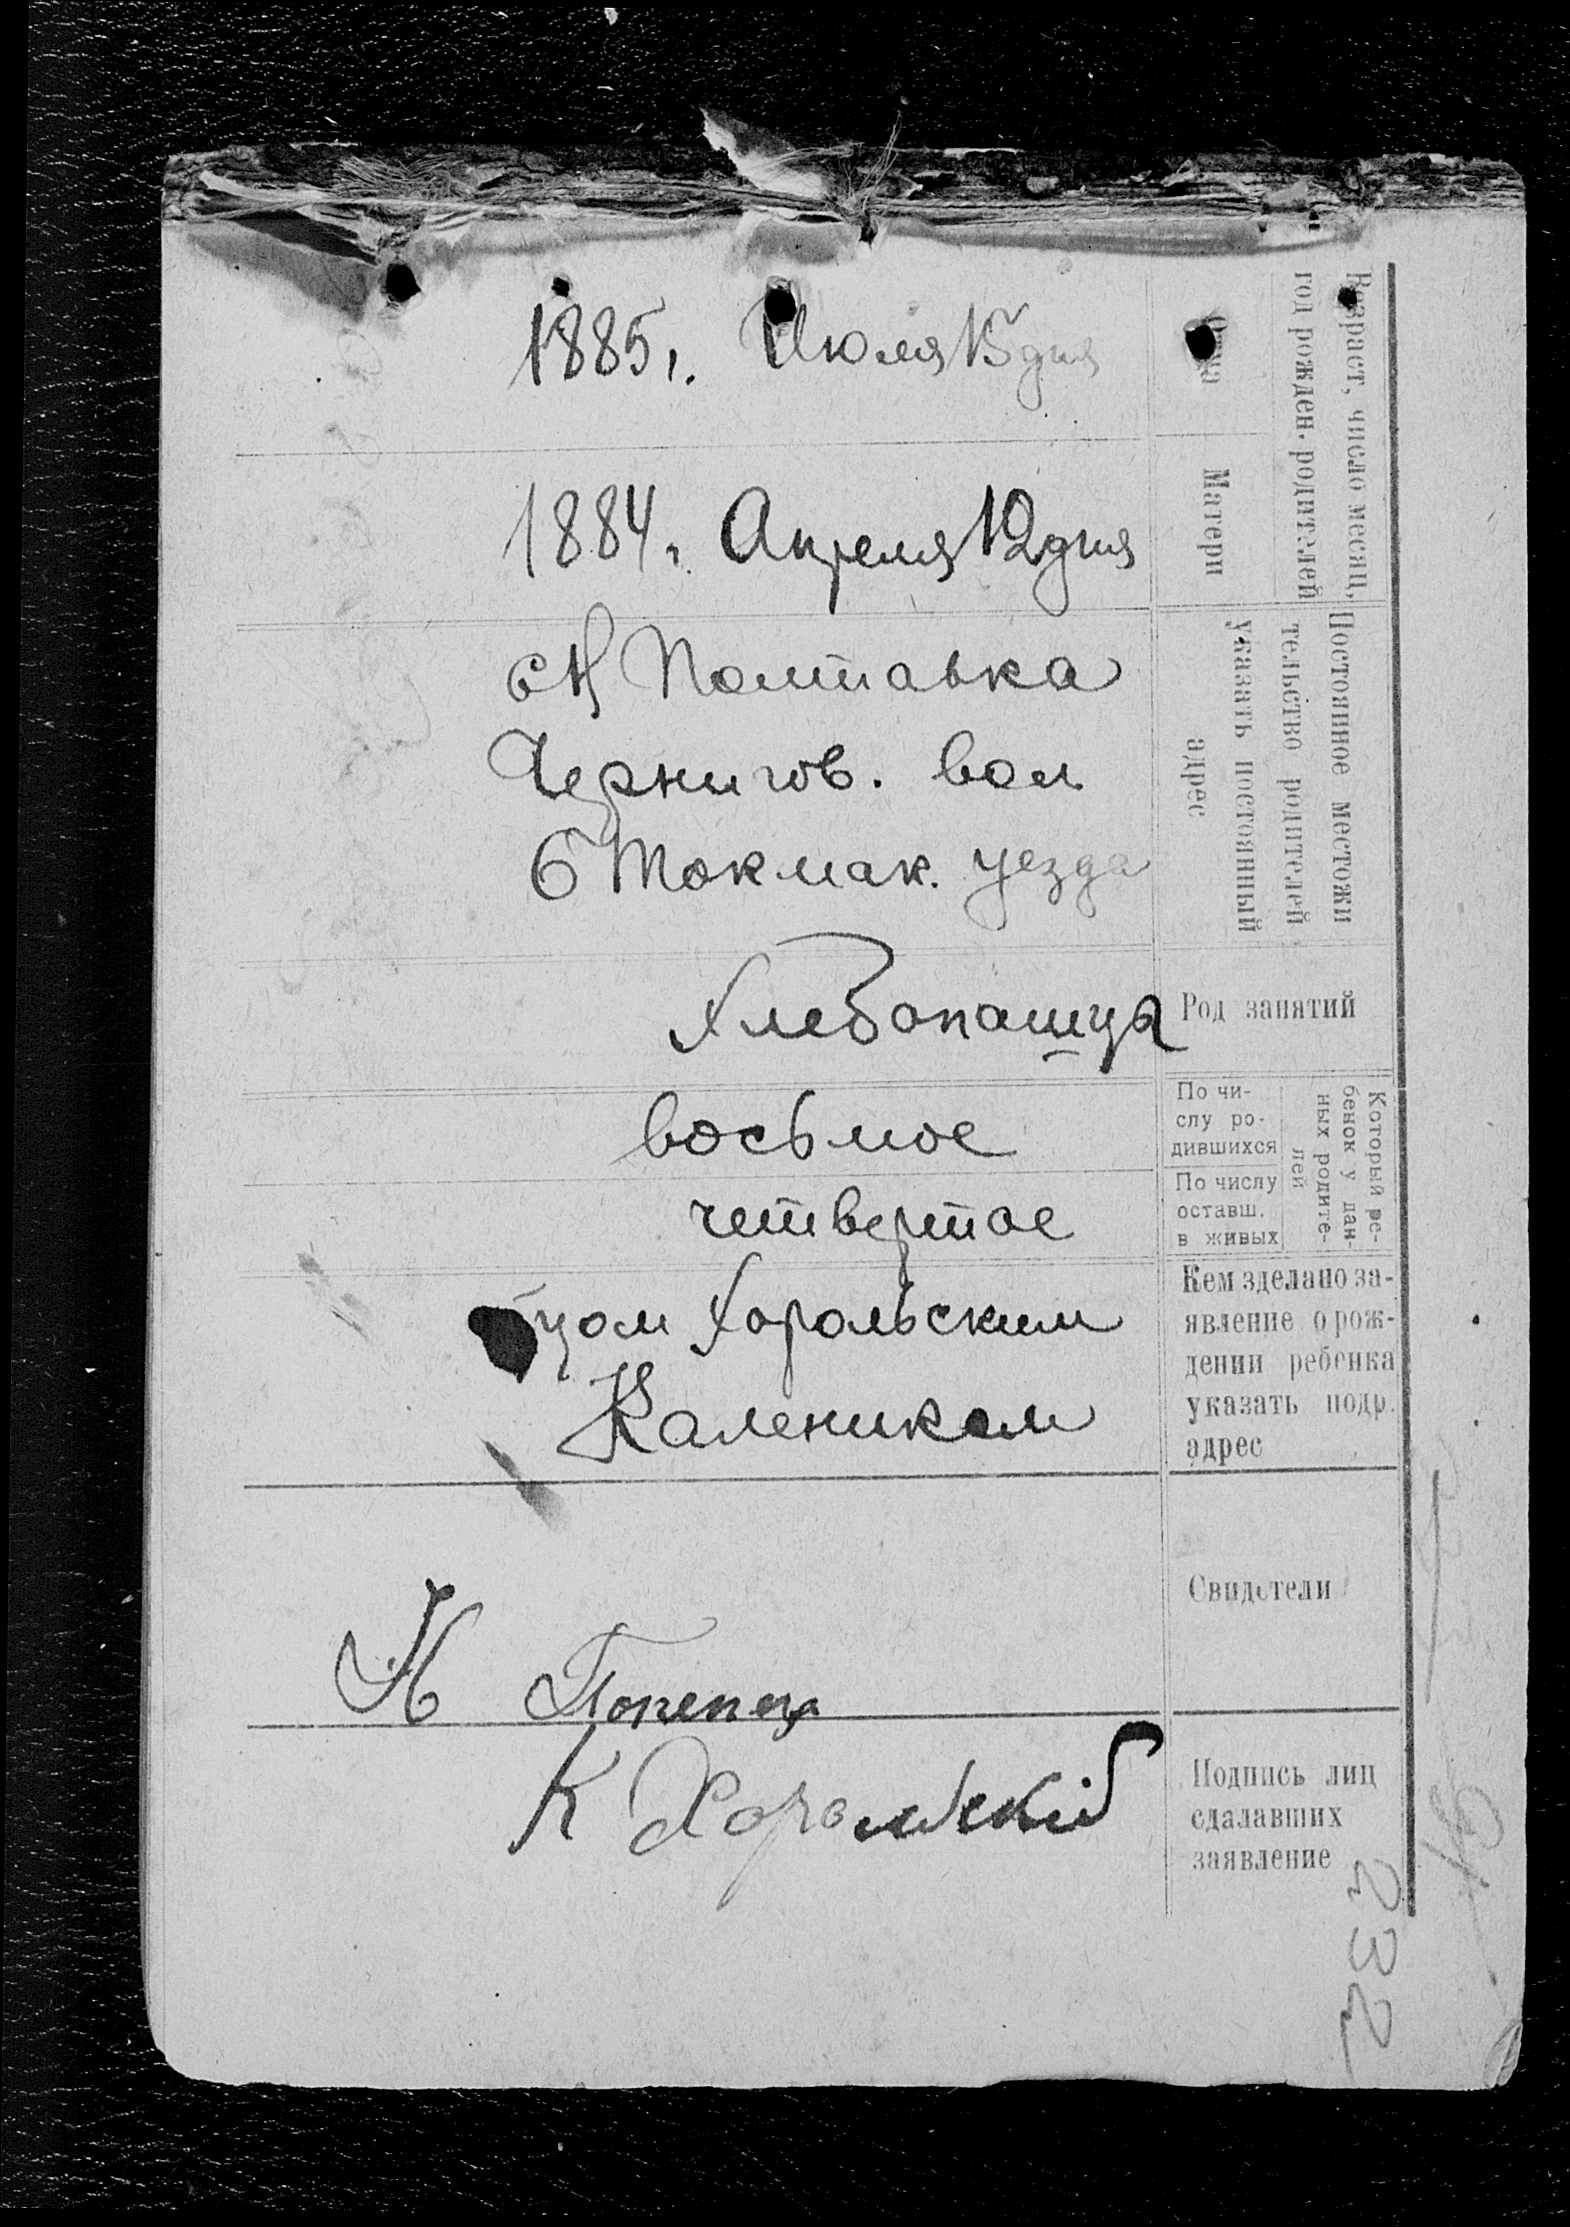 Возраст, число месяц,
год рожден. родителей
Отца
1885 г. Июля 15 дня
Матери
1884 г. Апреля 12 дня
Постоянное местожи
тельство родителей
указать постоянный
адрес
с Н Полтавка
Чернигов. вол
Б Токмак. уезда
Род занятий
Хлебопашца
Который ре-
бенок у дан-
ных родите-
лей
По чи-
слу ро-
дившихся
восьмое
По числу
оставш.
в живых
четвертое
Кем зделано за-
явление о рож-
дении ребенка
указать подр.
адрес
цом Хорольским
Калеником
Свидетели
Н
Подпись лиц
сдалавших
заявление
К Хорольскій
232